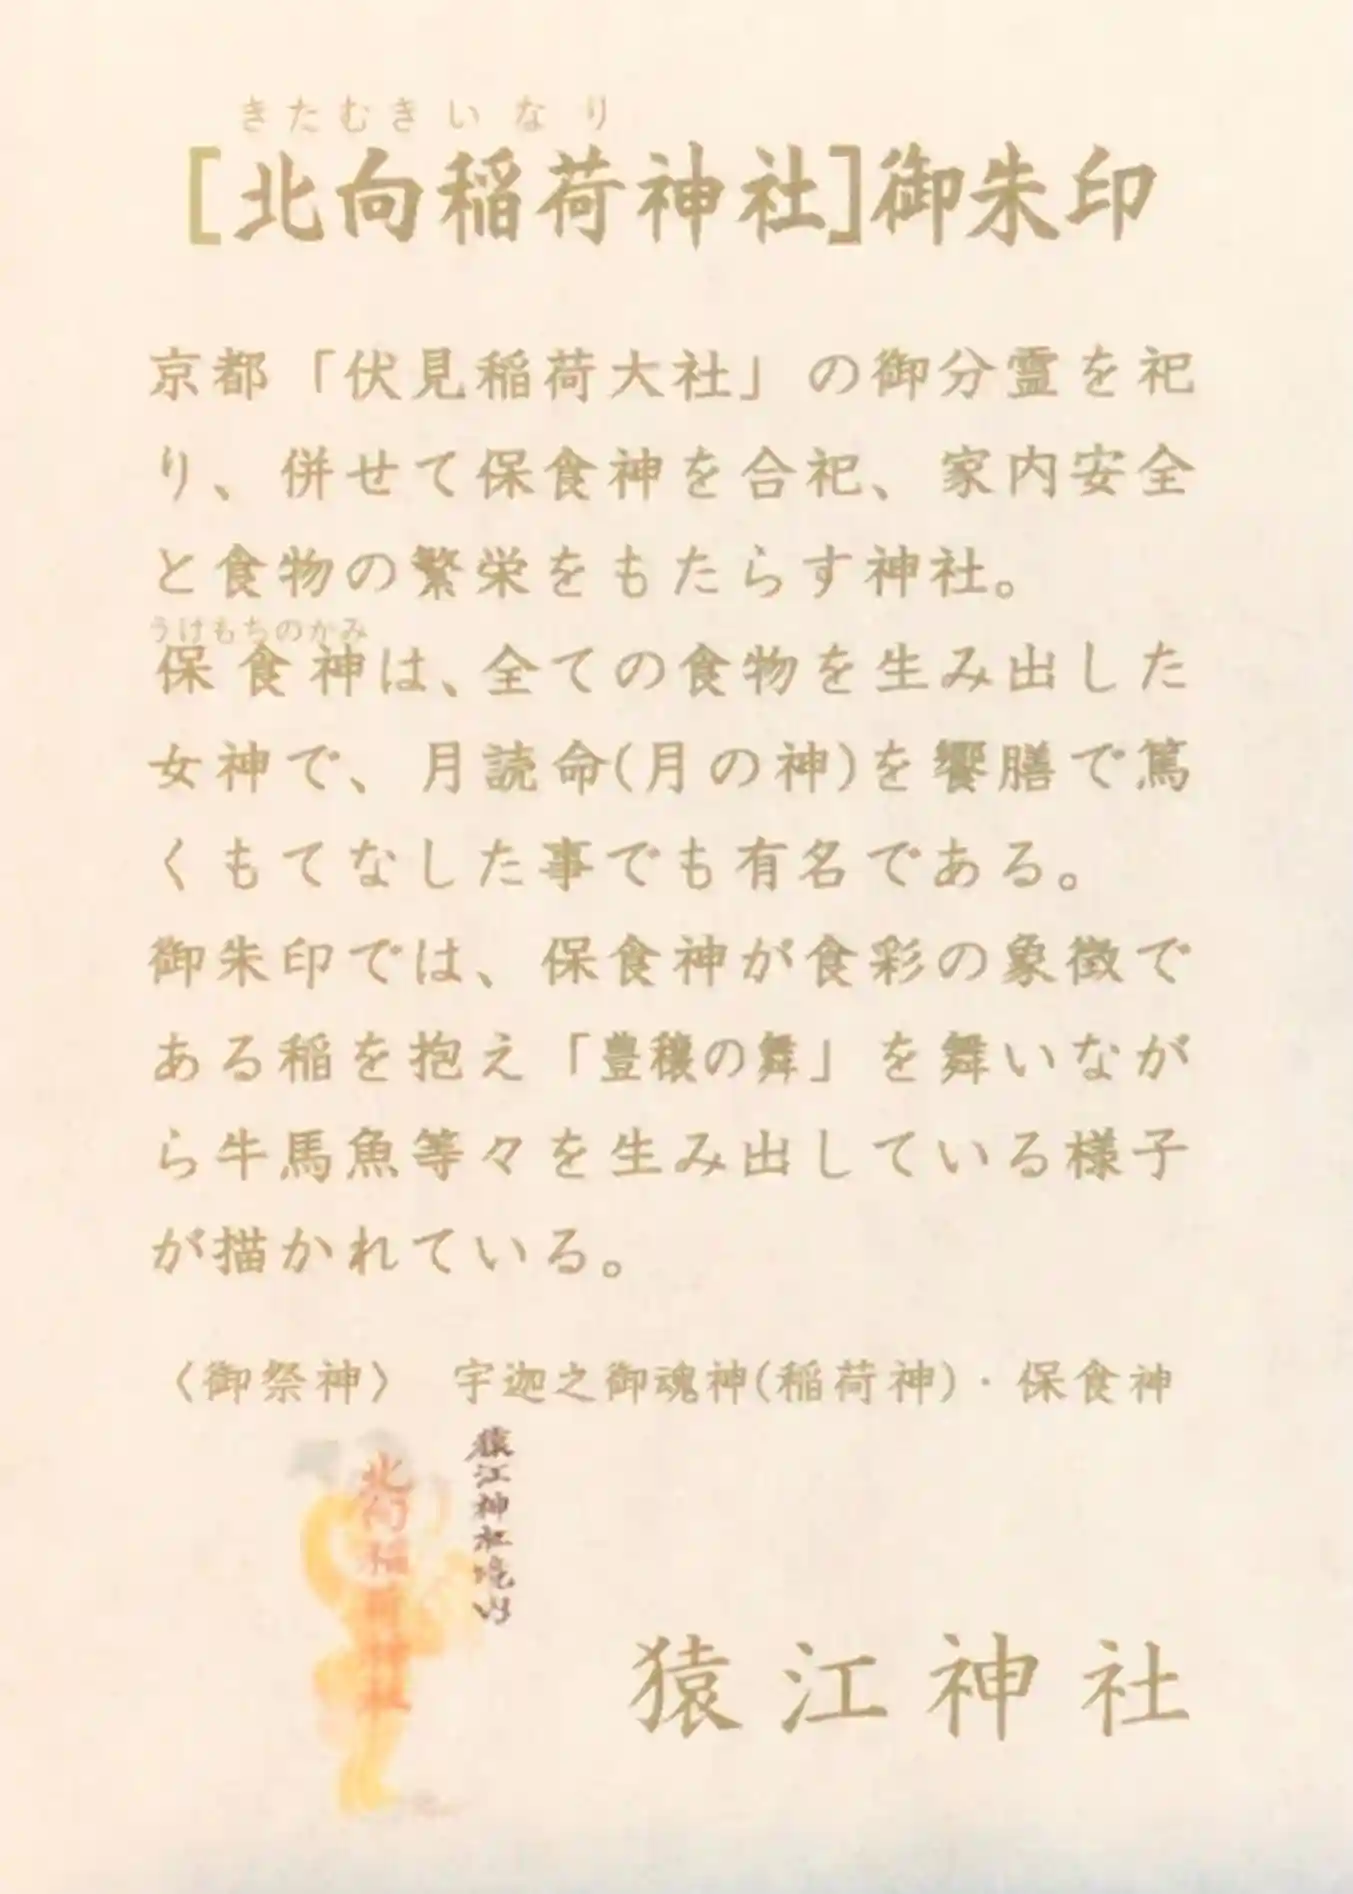 きたむきいなり
[北向稲荷神社]御朱印
京都「伏見稲荷大社」の御分霊を祀
り、併せて保食神を合祀、家内安全
と食物の繁栄をもたらす神社。
うけもちのかみ
保食神は、全ての食物を生み出した
女神で、月読命(月の神)を饗膳で篤
くもてなした事でも有名である。
御朱印では、保食神が食彩の象徴で
ある稲を抱え「豊穣の舞」を舞いなが
ら牛馬魚等々を生み出している様子
が描かれている。
〈御祭神〉 宇迦之御魂神(稲荷神)・保食神
猿江神社境内
北向稲荷神社
猿江神社